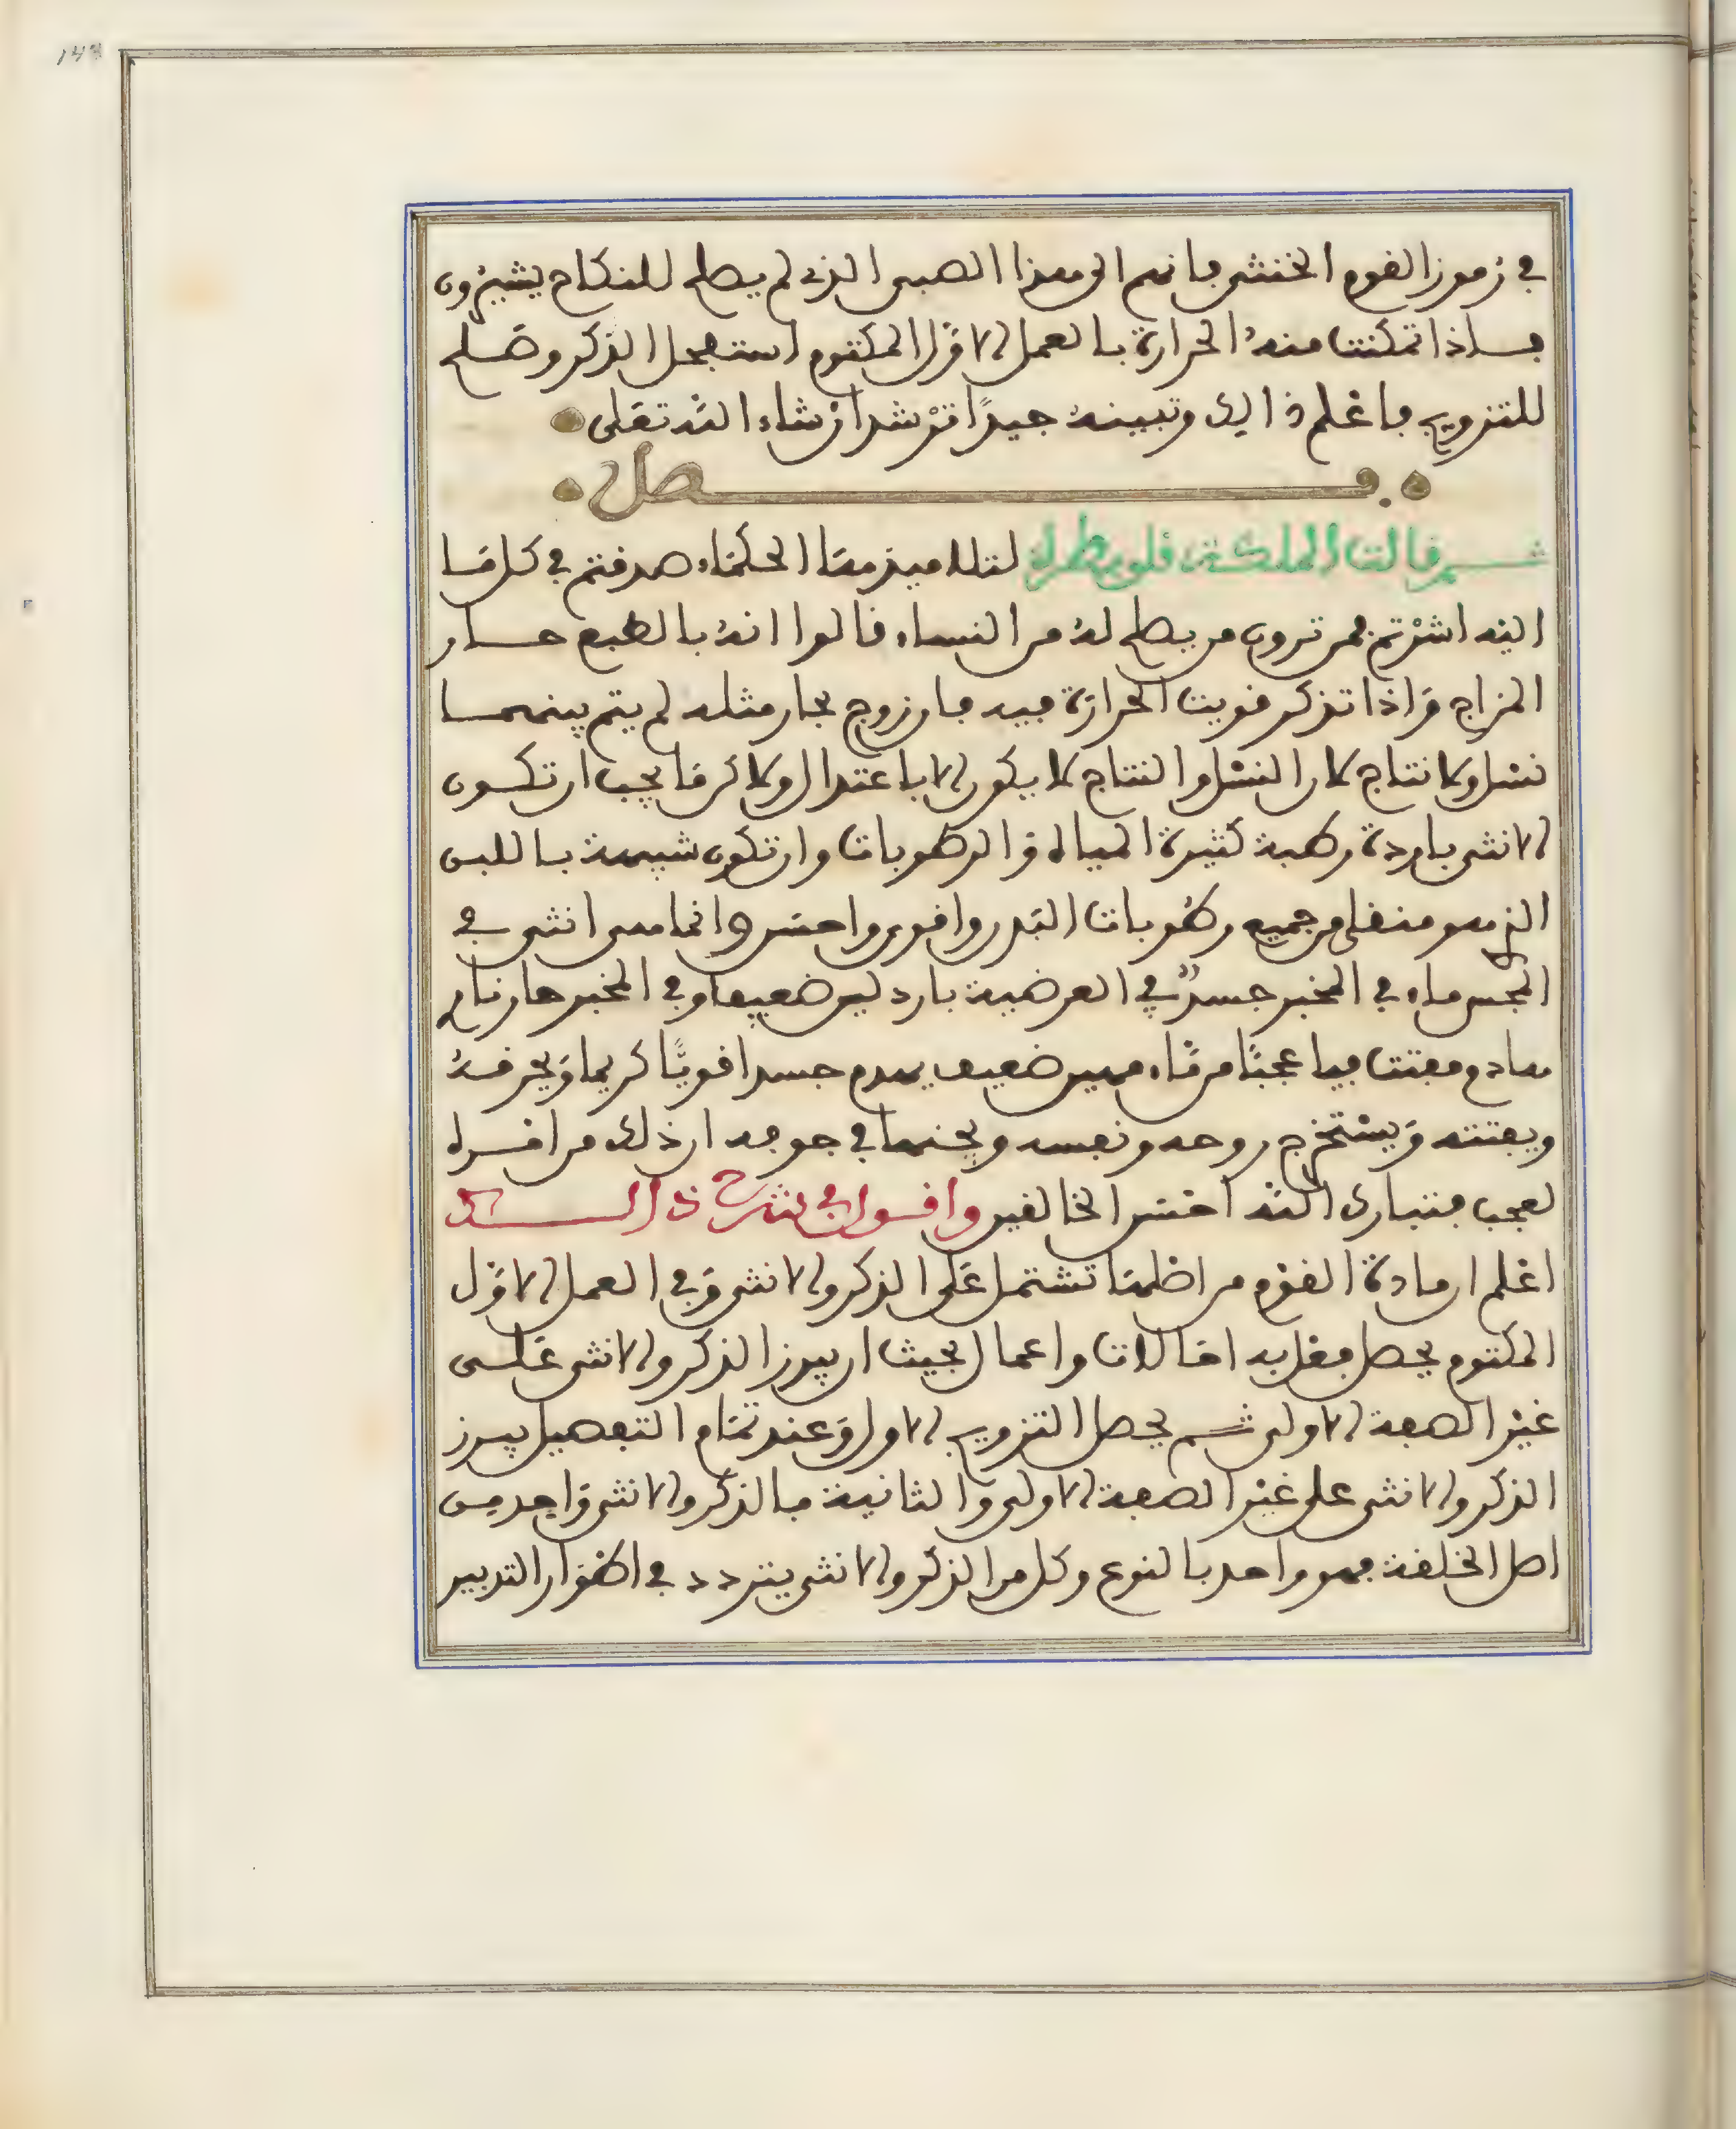 148
في رموز القوم الخنثى فانهم الى هذا الصبى الذى لم يصلح للنكاح يشيرون
فاذا تمكنت منه الحرارة بالعمل الاول المكتوم استعجل الذكر وصلح
للتزويج فاعلم ذالك وتبينه جيدًا ترشد ان شاء الله تعلى
فصل
ثم قالت الملكة قلوبطرة لتلاميذها الحكماء صدقتم في كل ما
اليه اشرتم فمن ترون من يصلح له من النساء قالوا انه بالطبع حار
المزاج واذا تذكر قويت الحرارة فيه فان زوج بحار مثله لم يتم بينهما
نسل ولا نتاج لان النسل والنتاج لا يكون الا باعتدال ولاكن يجب ان تكون
الانثى باردة رطبة كثيرة المياه والرطوبات وان تكون شبيهة باللبن
الذي هو منقى من جميع رطوبات البدن واقوى واحسن وانما هى انثى في
المجس ماء في المخبر جسدٌ في العرضية بارد لين ضعيف وفي المخبر حار نار
هادم مفتت فيا عجبًا من ماء مهين ضعيف يهدم جسدا قويًا كريما ويحرقه
ويفتته ويستخرج روحه ونفسه ويجنها في جوفه ان ذلك من امره
لعجب فتبارك الله احسن الخالقين واقول في شرح ذالك
اعلم ان مادة القوم من اصلها تشتمل على الذكر والانثى وفي العمل الاول
المكتوم يحصل فعل به احالات واعمال بحيث ان يبرز الذكر والانثى على
غير الصفة الاولى ثم يحصل التزويج الاول وعند تمام التفصيل يبرز
الذكر والانثى على غير الصفة الاولى والثانية فالذكر والانثى واحد من
اصل الخلقة فهو واحد بالنوع وكل من الذكر والانثى يتردد في اطوار التدبير